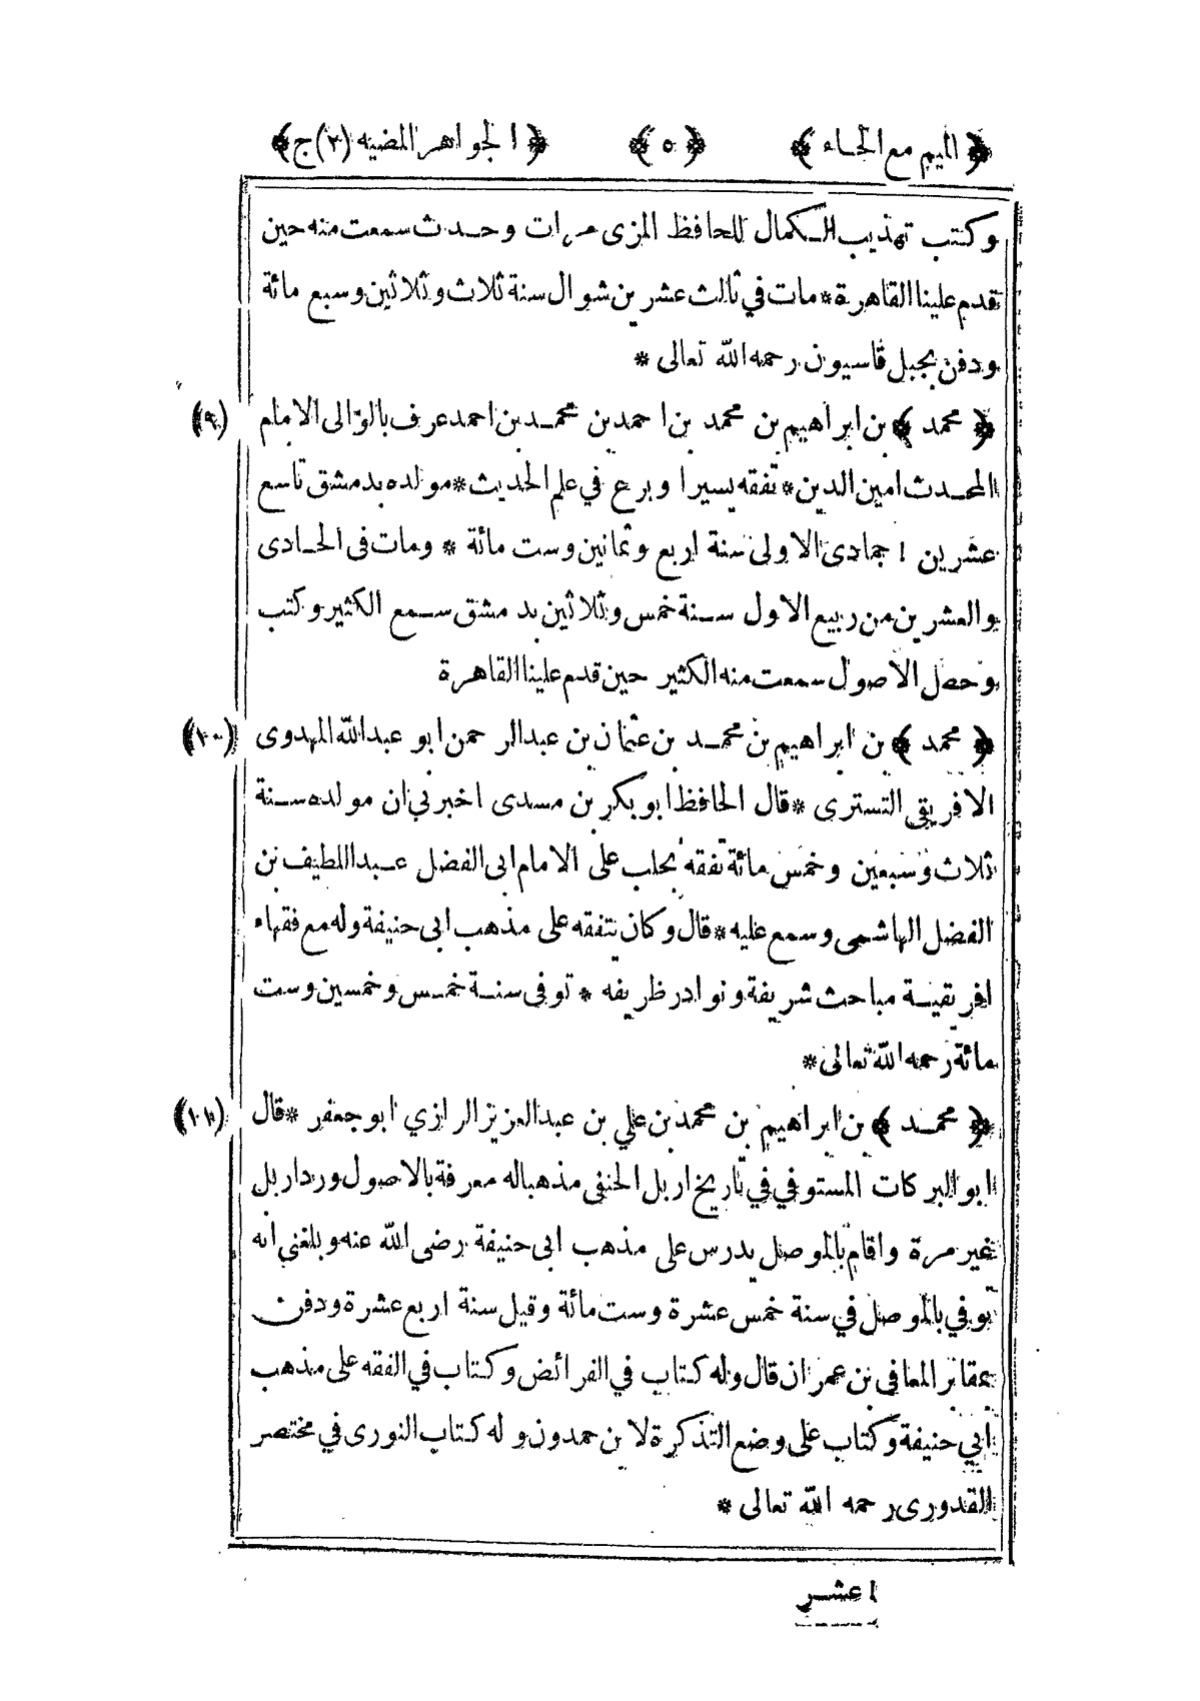 ﴿ الميم مع الحاء ﴾ ﴿ ٥ ﴾ ﴿ الجواهر المضيه (٢) ج ﴾
وكتب تهذيب الكمال للحافظ المزى مرات وحدث سمعت منه حين
قدم علينا القاهرة * مات في ثالث عشرين شوال سنة ثلاث وثلاثين وسبع مائة
ودفن بجبل قاسيون رحمه الله تعالى *
﴿ محمد ﴾ بن ابراهيم بن محمد بن احمد بن محمد بن احمد عرف بالوالى الامام (٩)
المحدث امين الدين * تفقه يسيرا وبرع في علم الحديث * مولده بدمشق تاسع
عشرين ١ جمادى الاولى سنة اربع وثمانين وست مائة * ومات فى الحادى
والعشرين من ربيع الاول سنة خمس وثلاثين بدمشق سمع الكثير وكتب
وحصل الاصول سمعت منه الكثير حين قدم علينا القاهرة
﴿ محمد ﴾ بن ابراهيم بن محمد بن عثمان بن عبد الرحمن ابو عبد الله المهدوى (١٠)
الافريقى التسترى * قال الحافظ ابوبكر بن مسدى اخبرني ان مولده سنة
ثلاث وسبعين وخمس مائة تفقه بحلب على الامام ابى الفضل عبد اللطيف بن
الفضل الهاشمى وسمع عليه * قال وكان يتفقه على مذهب ابى حنيفة وله مع فقهاء
افريقية مباحث شريفة ونوادر ظريفه * توفى سنة خمس وخمسين وست
مائة رحمه الله تعالى *
﴿ محمد ﴾ بن ابراهيم بن محمد بن علي بن عبد العزيز الرازي ابو جعفر * قال (١١)
ابو البركات المستوفي في تاريخ اربل الحنفى مذهبا له معرفة بالاصول ورد اربل
غير مرة واقام بالموصل يدرس على مذهب ابى حنيفة رضى الله عنه وبلغني انه
توفي بالموصل في سنة خمس عشرة وست مائة وقيل سنة اربع عشرة ودفن
بمقابر المعافى بن عمران قال وله كتاب في الفرائض وكتاب في الفقه على مذهب
ابي حنيفة وكتاب على وضع التذكرة لابن حمدون وله كتاب النورى في مختصر
القدورى رحمه الله تعالى *
١ عشر